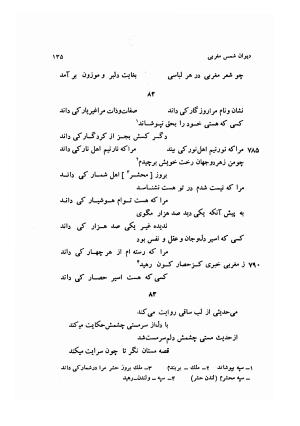 دیوان شمس مغربی ۱۳۵
چو شعر مغربی در هر لباسی بغایت دلبر و موزون بر آمد
۸۲
نشان و نام مرا روزگار کی داند صفات و ذات مرا غیر یار کی داند
کسی که هستی خود را بحق نپوشاند۱
دگر کسش بجز از کردگار کی داند
۷۸۵ مرا که نور نیم اهل نور کی بیند مرا که نار نیم اهل نار کی داند
چو من ز هر دو جهان رخت خویش برچیدم۲
بروز [ محشر۳ ] اهل شمار کی داند
مرا که نیست شدم در تو هست نشناسد
مرا که هست توام هوشیار کی داند
به پیش آنکه یکی دید صد هزار مگوی
ندیده غیر یکی صد هزار کی داند
کسی که اسیر دل و جان و عقل و نفس بود
مرا که رسته ام از هر چهار کی داند
۷۹۰ ز مغربی خبری کز حصار کون رهید۴
کسی که هست اسیر حصار کی داند
۸۳
می حدیثی از لب ساقی روایت می کند
با دل از سرمستی چشمش حکایت میکند
از حدیث مستی چشمش دلم سرمست شد
قصه مستان نگر تا چون سرایت میکند
۱ـ سپه بپوشاند ۲ـ ملک ـ بربندم ۳ـ ملک بروز حشر مرا در شمار کی داند
ـ سپه محشرم ( لندن حشر ) ۴ـ سپه ـ ولندن ـ رهید